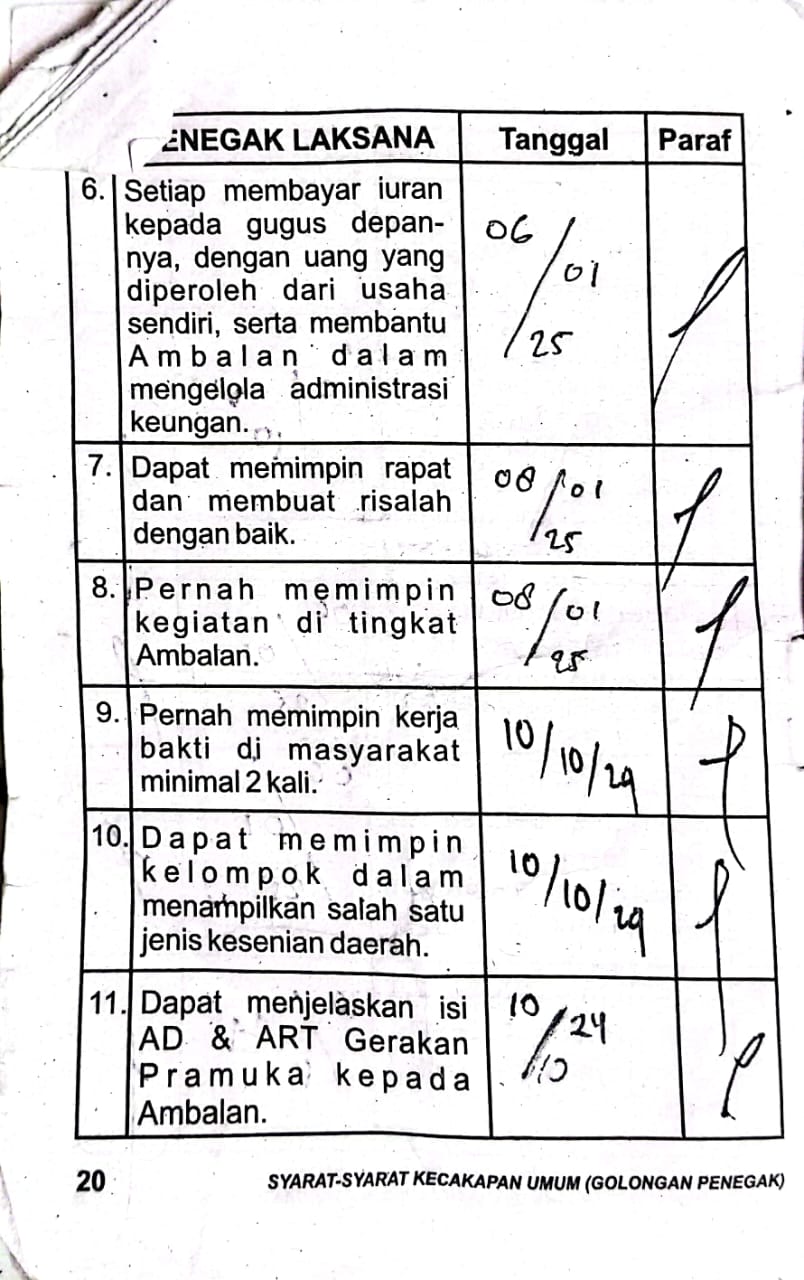 ENEGAK LAKSANA Tanggal Paraf
6. Setiap membayar iuran
kepada gugus depan-
nya, dengan uang yang
diperoleh dari usaha
sendiri, serta membantu
Ambalan dalam
mengelola administrasi
keungan.
06/01/25
7. Dapat memimpin rapat
dan membuat risalah
dengan baik.
08/01/25
8. Pernah memimpin
kegiatan di tingkat
Ambalan.
08/01/25
9. Pernah memimpin kerja
bakti di masyarakat
minimal 2 kali.
10/10/29
10. Dapat memimpin
kelompok dalam
menampilkan salah satu
jenis kesenian daerah.
10/10/29
11. Dapat menjelaskan isi
AD & ART Gerakan
Pramuka kepada
Ambalan.
10/10/24
20 SYARAT-SYARAT KECAKAPAN UMUM (GOLONGAN PENEGAK)